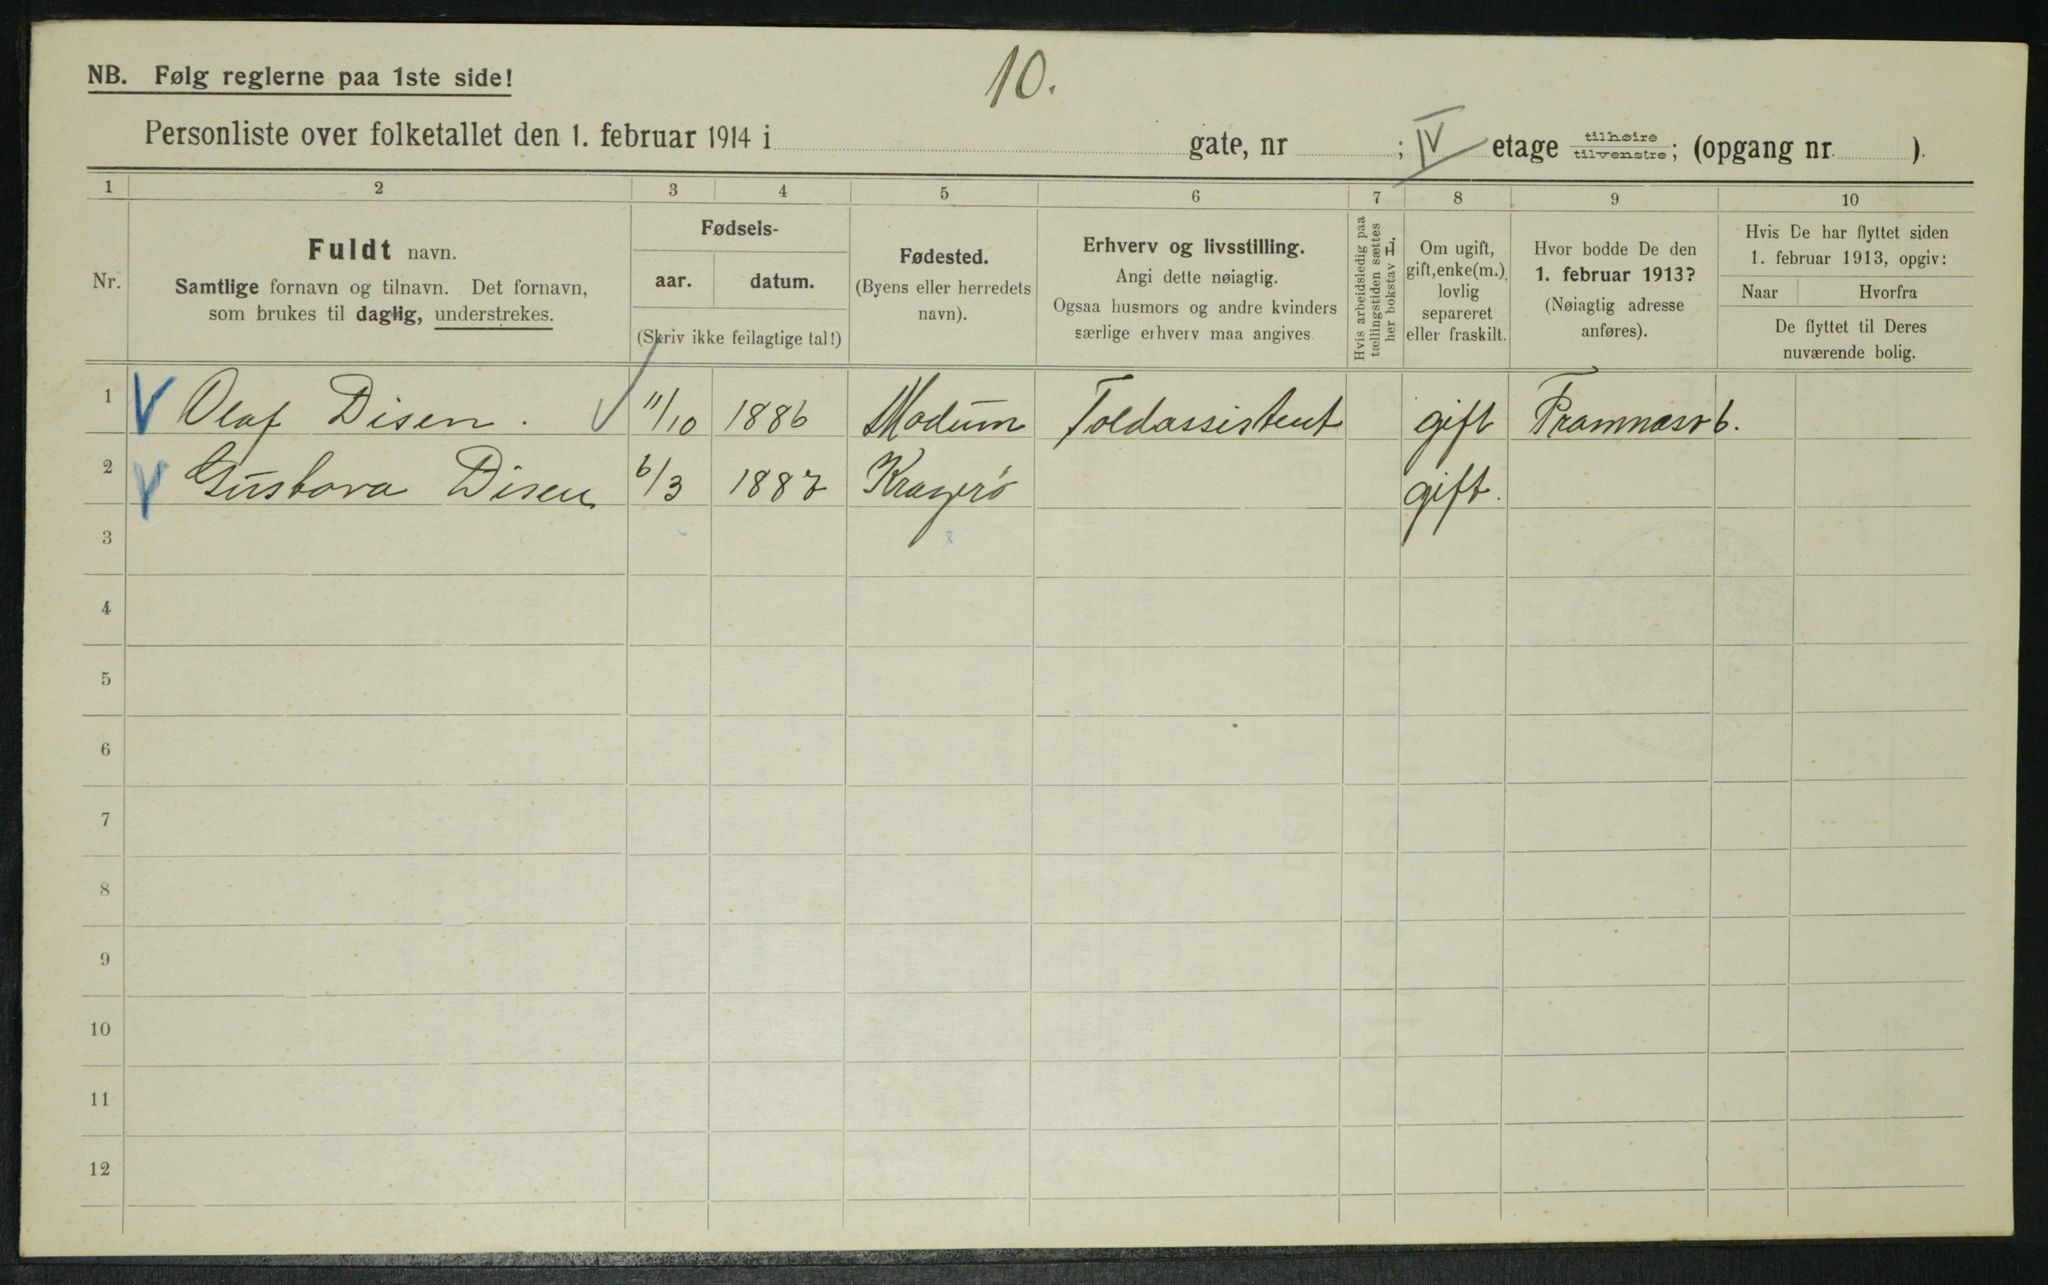 10.
NB. Følg reglerne paa 1ste side!
Personliste over folketallet den 1. februar 1914 i gate, nr ; IV etage tilhøire tilvenstre; (opgang nr. ).
1 2 3 4 5 6 7 8 9 10
Nr.
Fuldt navn.
Samtlige fornavn og tilnavn. Det fornavn,
som brukes til daglig, understrekes.
Fødsels-
aar. datum.
(Skriv ikke feilagtige tal!)
Fødested.
(Byens eller herredets
navn).
Erhverv og livsstilling.
Angi dette nøiagtig.
Ogsaa husmors og andre kvinders
særlige erhverv maa angives.
Hvis arbeidsledig paa
tællingstiden sættes
her bokstav L.
Om ugift,
gift, enke(m.),
lovlig
separeret
eller fraskilt.
Hvor bodde De den
1. februar 1913?
(Nøiagtig adresse
anføres).
Hvis De har flyttet siden
1. februar 1913, opgiv:
Naar Hvorfra
De flyttet til Deres
nuværende bolig.
1 Olaf Disen. 11/10 1886 Modum Toldassistent gift Framnæsv 6.
2 Gustava Disen 6/3 1887 Kragerö gift.
3
4
5
6
7
8
9
10
11
12